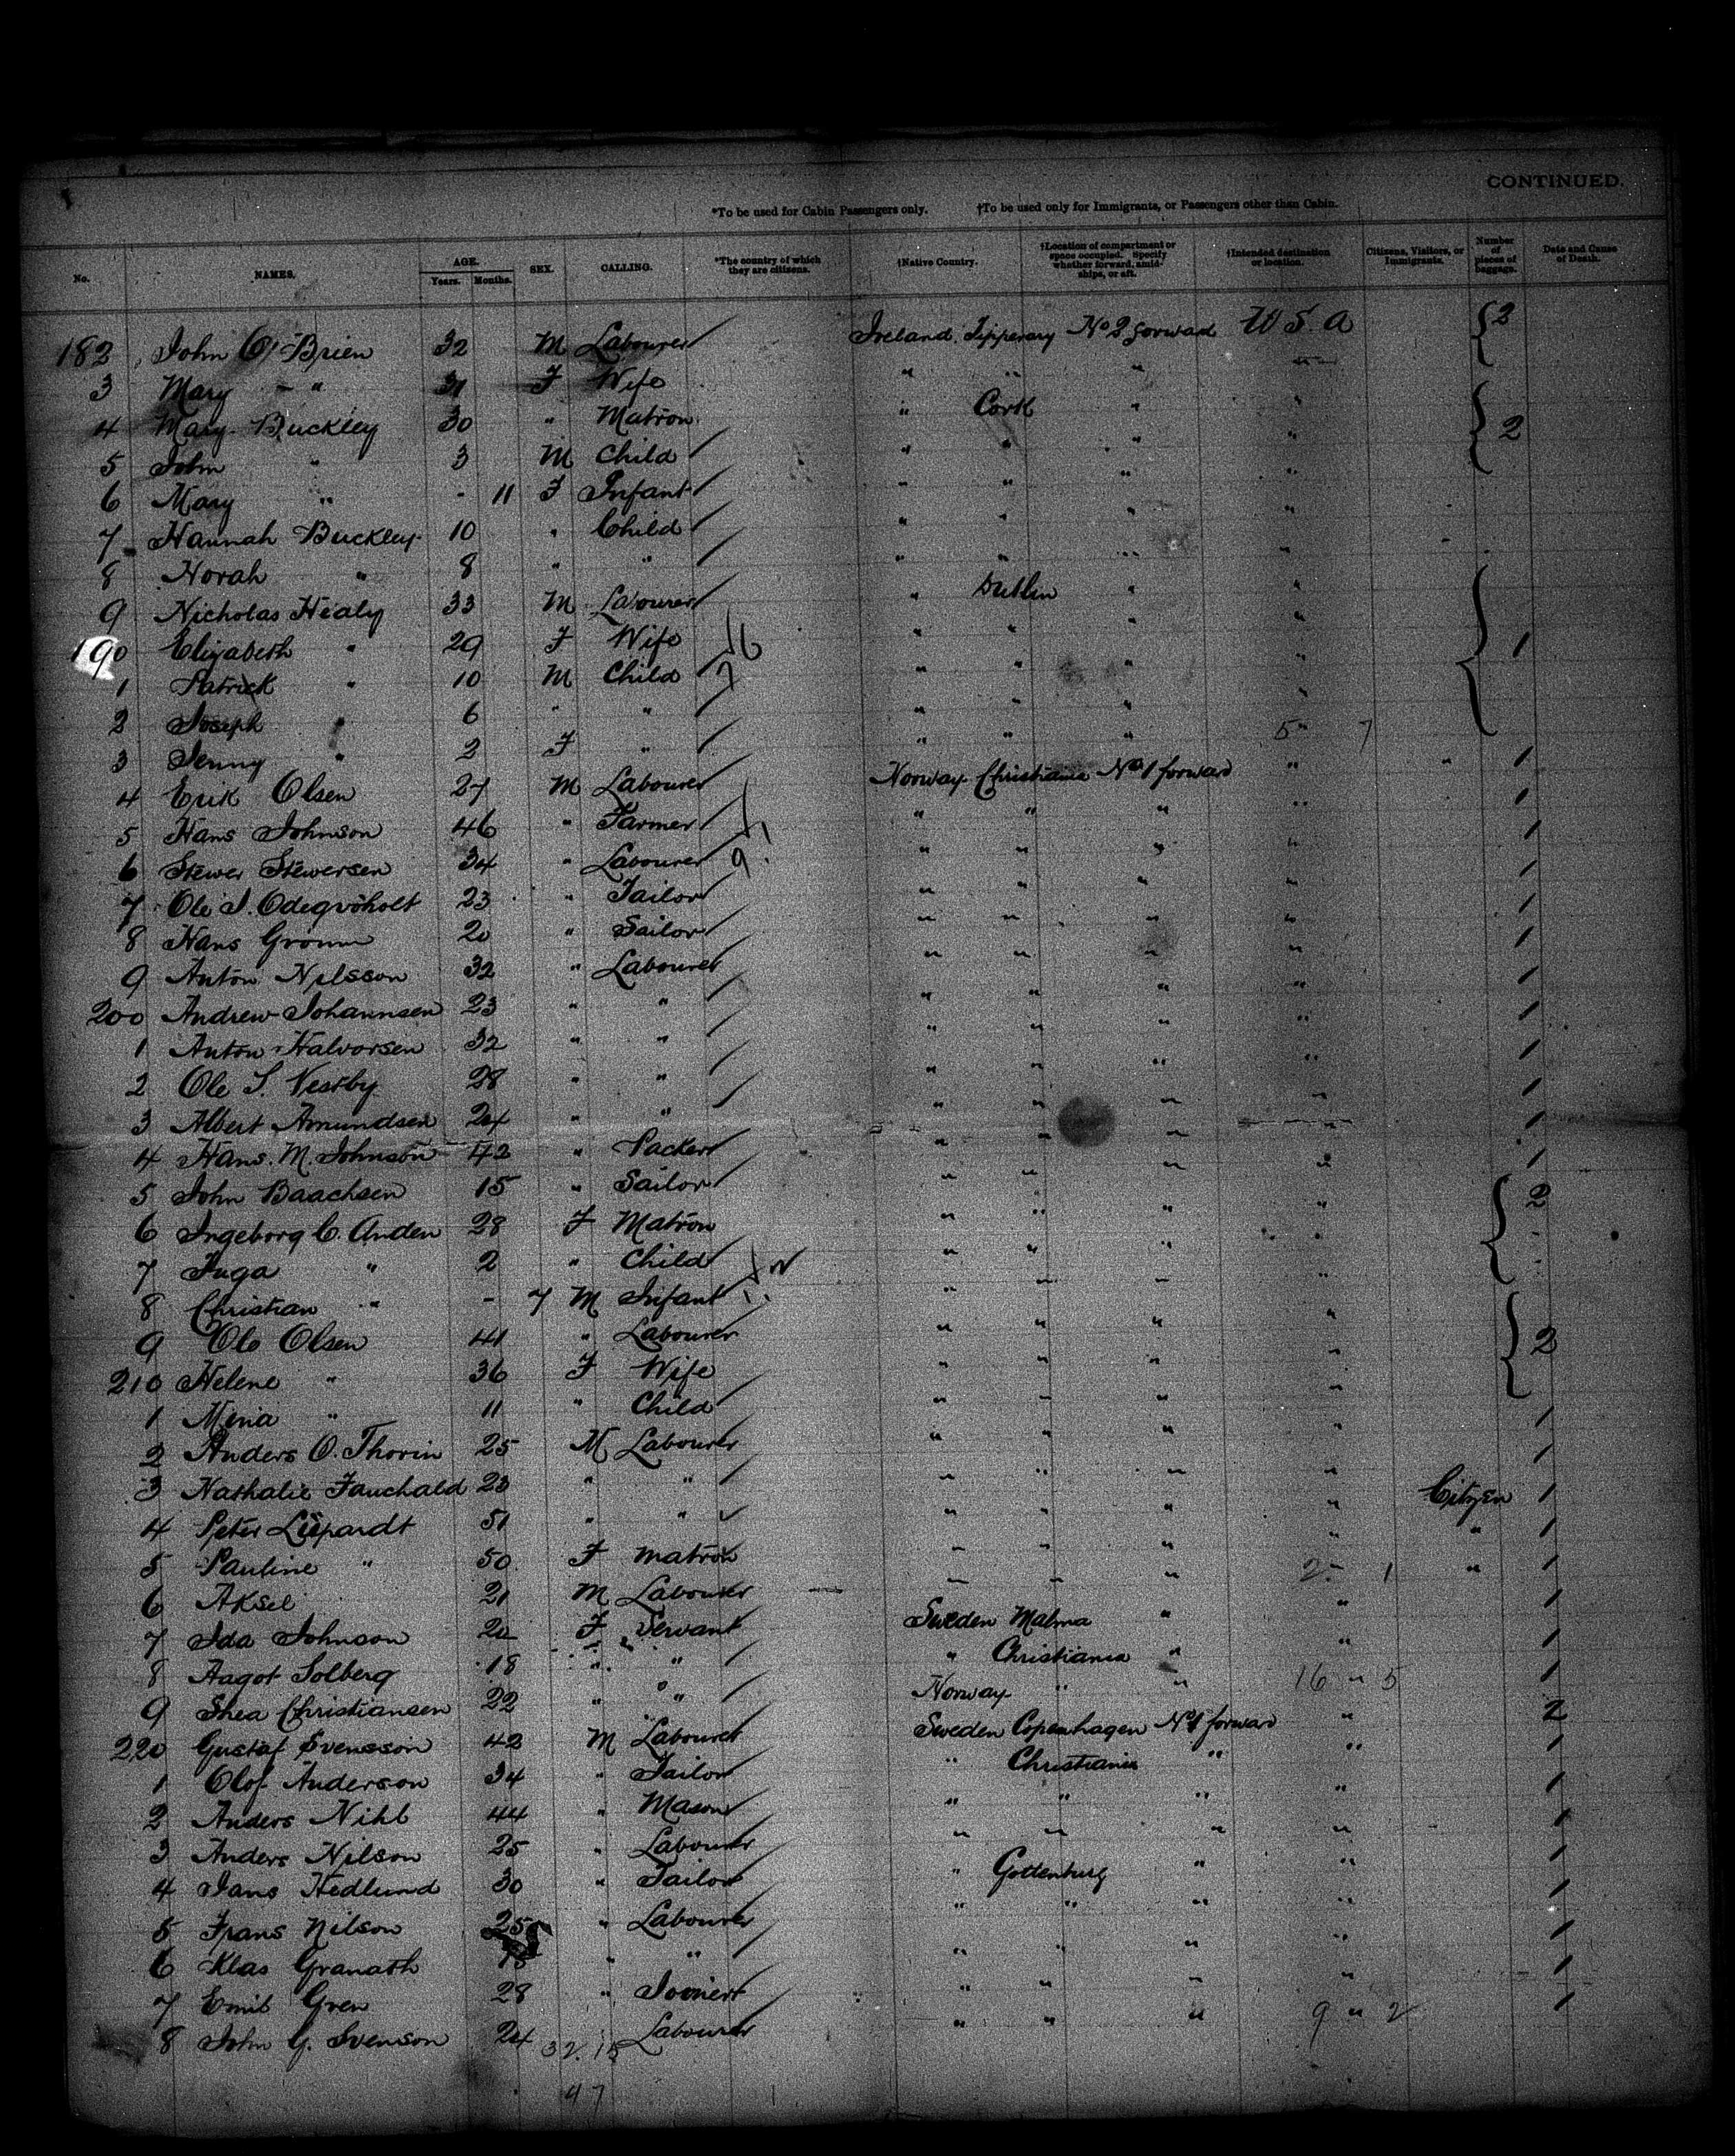 CONTINUED.
*To be used for Cabin Passengers only. †To be used only for Immigrants, or Passengers other than Cabin.
No. NAMES. AGE. Years. Months. SEX. CALLING. *The country of which they are citizens. †Native Country. †Location of compartment or space occupied. Specify whether forward, amidships, or aft. †Intended destination or location. Citizens, Visitors, or Immigrants. Number of pieces of baggage. Date and Cause of Death.
182 John O'Brien 32 M Labourer Ireland Tipperary No 2 forward U S A 2
3 Mary " 31 F Wife " " " "
4 Mary Buckley 30 " Matron " Cork " " 2
5 John " 3 M Child " " " "
6 Mary " - 11 F Infant " " " "
7 Hannah Buckley 10 " Child " " " "
8 Norah " 8 " " " " " "
9 Nicholas Healy 33 M Labourer " Dublin " "
190 Elizabeth " 29 F Wife " " " " 1
1 Patrick " 10 M Child " " " "
2 Joseph " 6 " " " " " "
3 Jenny " 2 F " " " " 5 " 7
4 Erik Olsen 27 M Labourer Norway Christiania No 1 forward " " 1
5 Hans Johnson 46 " Farmer " " " " 1
6 Stewer Stewersen 34 " Labourer " " " " 1
7 Ole J. Odegvoholt 23 " Tailor " " " " 1
8 Hans Gronn 20 " Sailor " " " " 1
9 Anton Nilsson 32 " Labourer " " " " 1
200 Andrew Johannsen 23 " " " " " " 1
1 Anton Halvorsen 32 " " " " " " 1
2 Ole S. Vestby 28 " " " " " " 1
3 Albert Amundsen 24 " " " " " " 1
4 Hans. M. Johnson 42 " Packer " " " " 1
5 John Baachsen 15 " Sailor " " " " 1
6 Ingeborg C. Anden 28 F Matron " " " " 2
7 Inga " 2 " Child " " " "
8 Christian " - 7 M Infant " " " "
9 Ole Olsen 41 " Labourer " " " " 2
210 Helene " 36 F Wife " " " "
1 Mina " 11 " Child " " " "
2 Anders O. Thorin 25 M Labourer " " " " 1
3 Nathalie Fauchald 23 " " " " " " 1
4 Peter Liepardt 51 " " " " " " Citizen 1
5 Pauline " 50 F Matron " " " " " 1
6 Aksel 21 M Labourer " " " 2 " 1 " 1
7 Ida Johnson 20 F Servant Sweden Malma " " 1
8 Aagot Solberg 18 " " " Christiania " " 1
9 Thea Christiansen 22 " " Norway " " 16 " 5 1
220 Gustaf Svensson 42 M Labourer Sweden Copenhagen No 1 forward " 2
1 Olof Anderson 34 " Tailor " Christiania " " 1
2 Anders Nihl 44 " Mason " " " " 1
3 Anders Nilson 25 " Labourer " " " " 1
4 Jans Hedlund 30 " Tailor " Gottenburg " " 1
5 Frans Nilson 25 " Labourer " " " " 1
6 Klas Granath " " " " " " 1
7 Emil Gren 28 " Joiner " " " " 1
8 John G. Svenson 24 Labourer " " " 9 " 2 1
32. 15
47